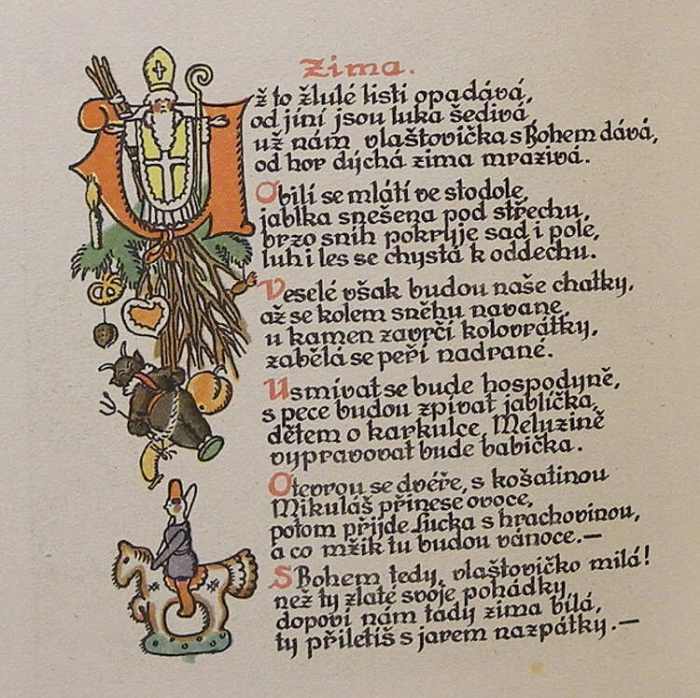 Zima.
Už to žluté listí opadává,
od jíní jsou luka šedivá,
už nám vlaštovička s Bohem dává,
od hor dýchá zima mrazivá.
Obilí se mlátí ve stodole,
jablka snešena pod střechu,
brzo sníh pokryje sad i pole,
luh i les se chystá k oddechu.
Veselé však budou naše chatky,
až se kolem sněhu navane,
u kamen zavrčí kolovrátky,
zabělá se peří nadrané.
Usmívat se bude hospodyně,
s pece budou zpívat jablíčka,
dětem o karkulce, Meluzině
vypravovat bude babička.
Otevrou se dvéře, s košatinou
Mikuláš přinese ovoce,
potom přijde Lucka s hrachovinou,
a co mžik tu budou vánoce.—
S Bohem tedy, vlaštovičko milá!
než ty zlaté svoje pohádky,
dopoví nám tady zima bílá,
ty přiletíš s jarem nazpátky.—